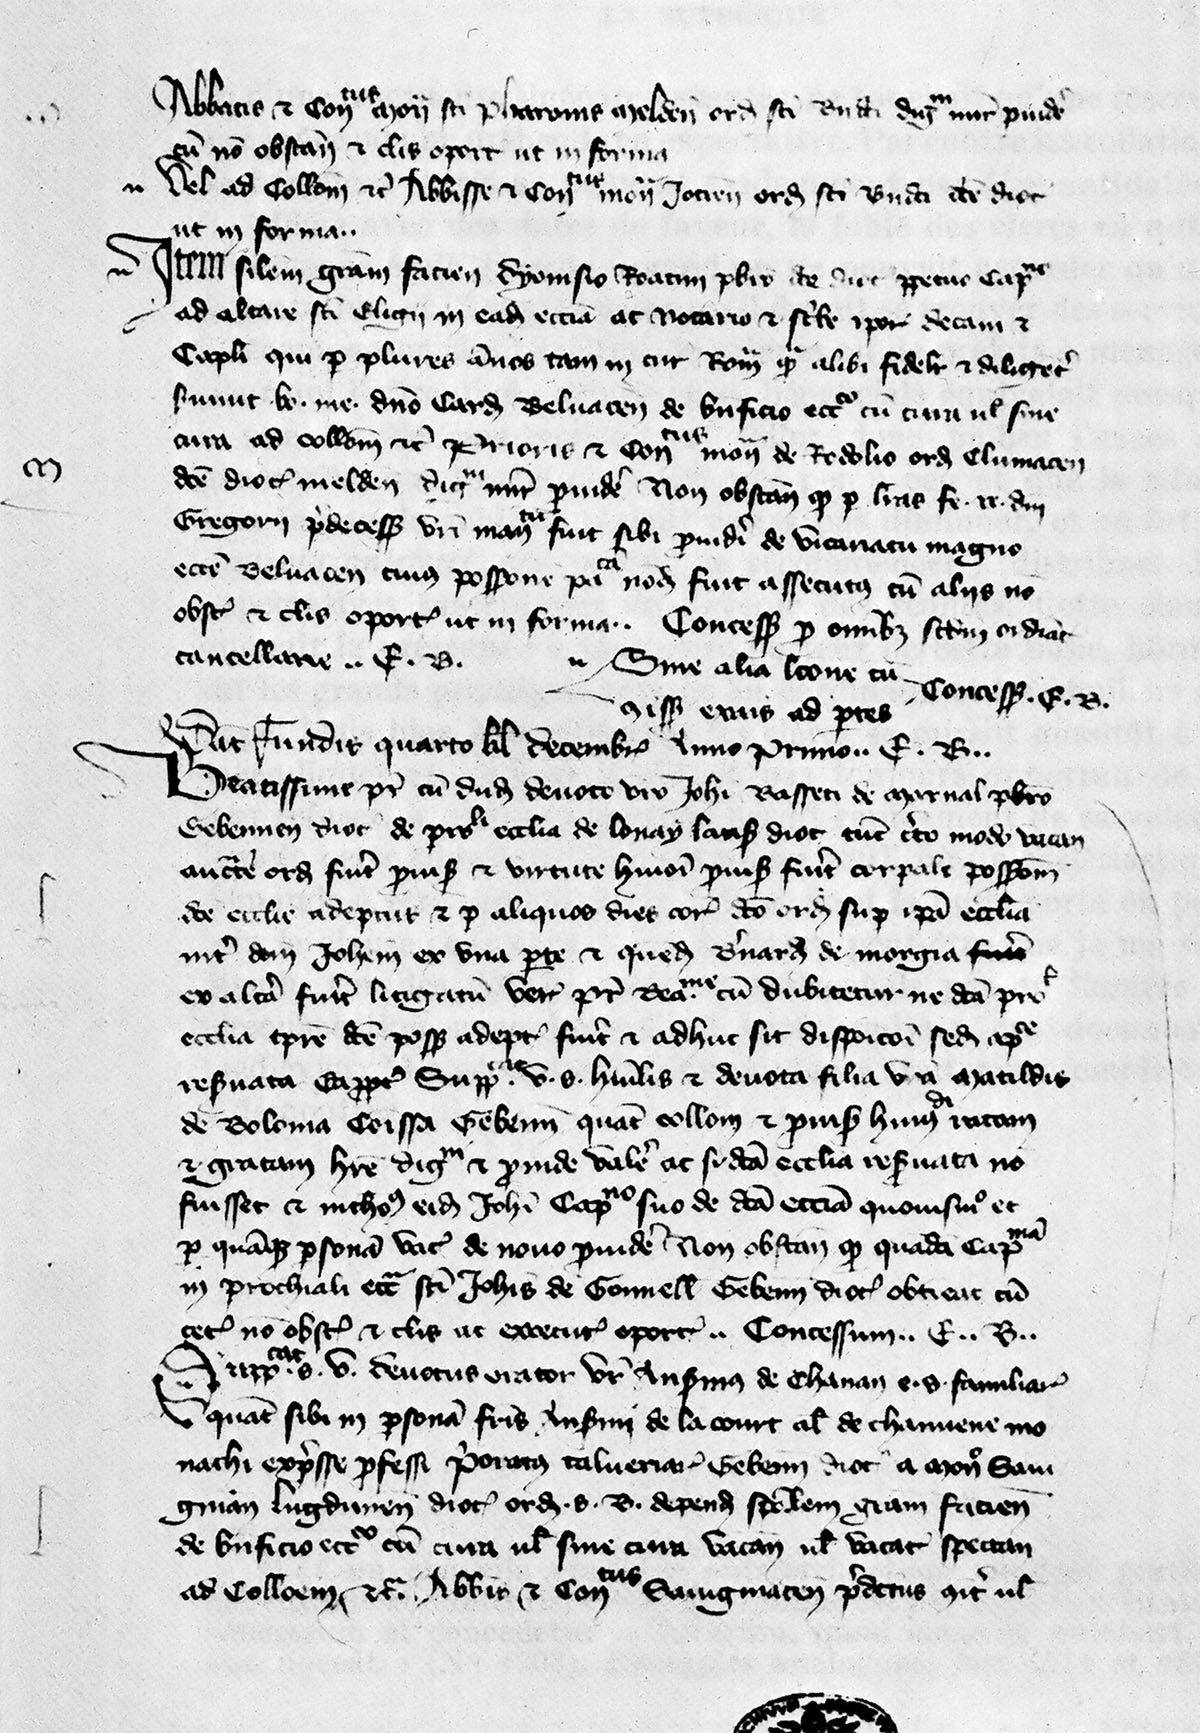 Abbatis ⁊ Con^tus moñ sci Pharonis melden ord sci Bndci dig^m nur puidē
cū nō obstañ ⁊ clis oport ut in forma
Vel ad Collom ⁊c Abbisse ⁊ Con^tus moñ Jotren ord sci Bndci dce dioc
ut in forma..
Item silem gram facien Dyonisio pbro dce dioc ppetuo Cap^no
ad altare sci Eligij in ead eccia ac Notario ⁊ ipor decani ⁊
Capli qui p plures ānos tam in cur Rom q^a alibi fidelr ⁊ diliget
bo. me. dno Card Beluacen de bnficio ecc^co cū cura ul sine
cura ad collom ⁊c Prioris ⁊ Con^tus moñ de ord Cluniacen
dce dioc melden dig^m nur puidē Non obstañ qp p lras fe. re. dni
Gregorij pdecess vri man^tu fuit sibi puidī de vicariatu magno
ecce Beluacen cuius possone pac^ca nod fuit assecutus cū aliis nō
obst ⁊ clis oport ut in forma.. Concess p omibz ordiāt
cancellarie .. C. B.
Sine alia lcone cū
Concess. C. B.
miss exūs ad ptes
Dat Fundis quarto kl decembr Anno Primo.. C. B..
Beatissime pr cū dud devoto viro Johi Basseti de Marnal pbro
Gebennen dioc de pro^li ecclia de lonay laus dioc tūc cto modo vacan
auctē ord fuit puis ⁊ virtute hmoi puis fuit corpale possom
dce ecclie adeptus ⁊ p aliquos dies cor dco ord sup ipā ecclia
int dcm Johem ex una pte ⁊ qued Bnard de morgia
ex altā fuit litigatū Ver pr Bea^me cū dubitetur ne dcā pro^l
ecclia tpre dce poss adept fuit ⁊ adhuc sit dispoicoi sed ap^ce
resuata Supp^cat v. s. huilis ⁊ devota filia vra Matildis
de Bolonia Coissa Gebenn quat collom ⁊ puis hui^di ratam
⁊ gratam hre dig^m ⁊ puide valē ac si dcā ecclia resuata nō
fuisset ⁊ eid Johi Cap^no suo de dcā ecciā quouismo et
p quāqz psonā vac de novo puidē Non obstan qp quadā Cap^niā
in prochiali ecc^a sci Johis de Gonnell Gebenn dioc obtieat cū
cet nō obst ⁊ clis ac execut oport .. Concessum.. C.. B..
Supp^cat s. v. devotus orator vr Ansmus de Chanan e. s. familiar
quat sibi in psonā fris Ansmi de la court al de channene mo
nachi expsse pfessi poratus talueriar Gebenn dioc a moñ Saui
gnian lugdunen dioc ord. s. B. depend spēlem gram facien
de bnficio ecc^co cū cura ul sine cura vacañ ul vacat spectan
ad Colloem ⁊c. Abbis ⁊ Con^tus Sauigniacen pdctus ul